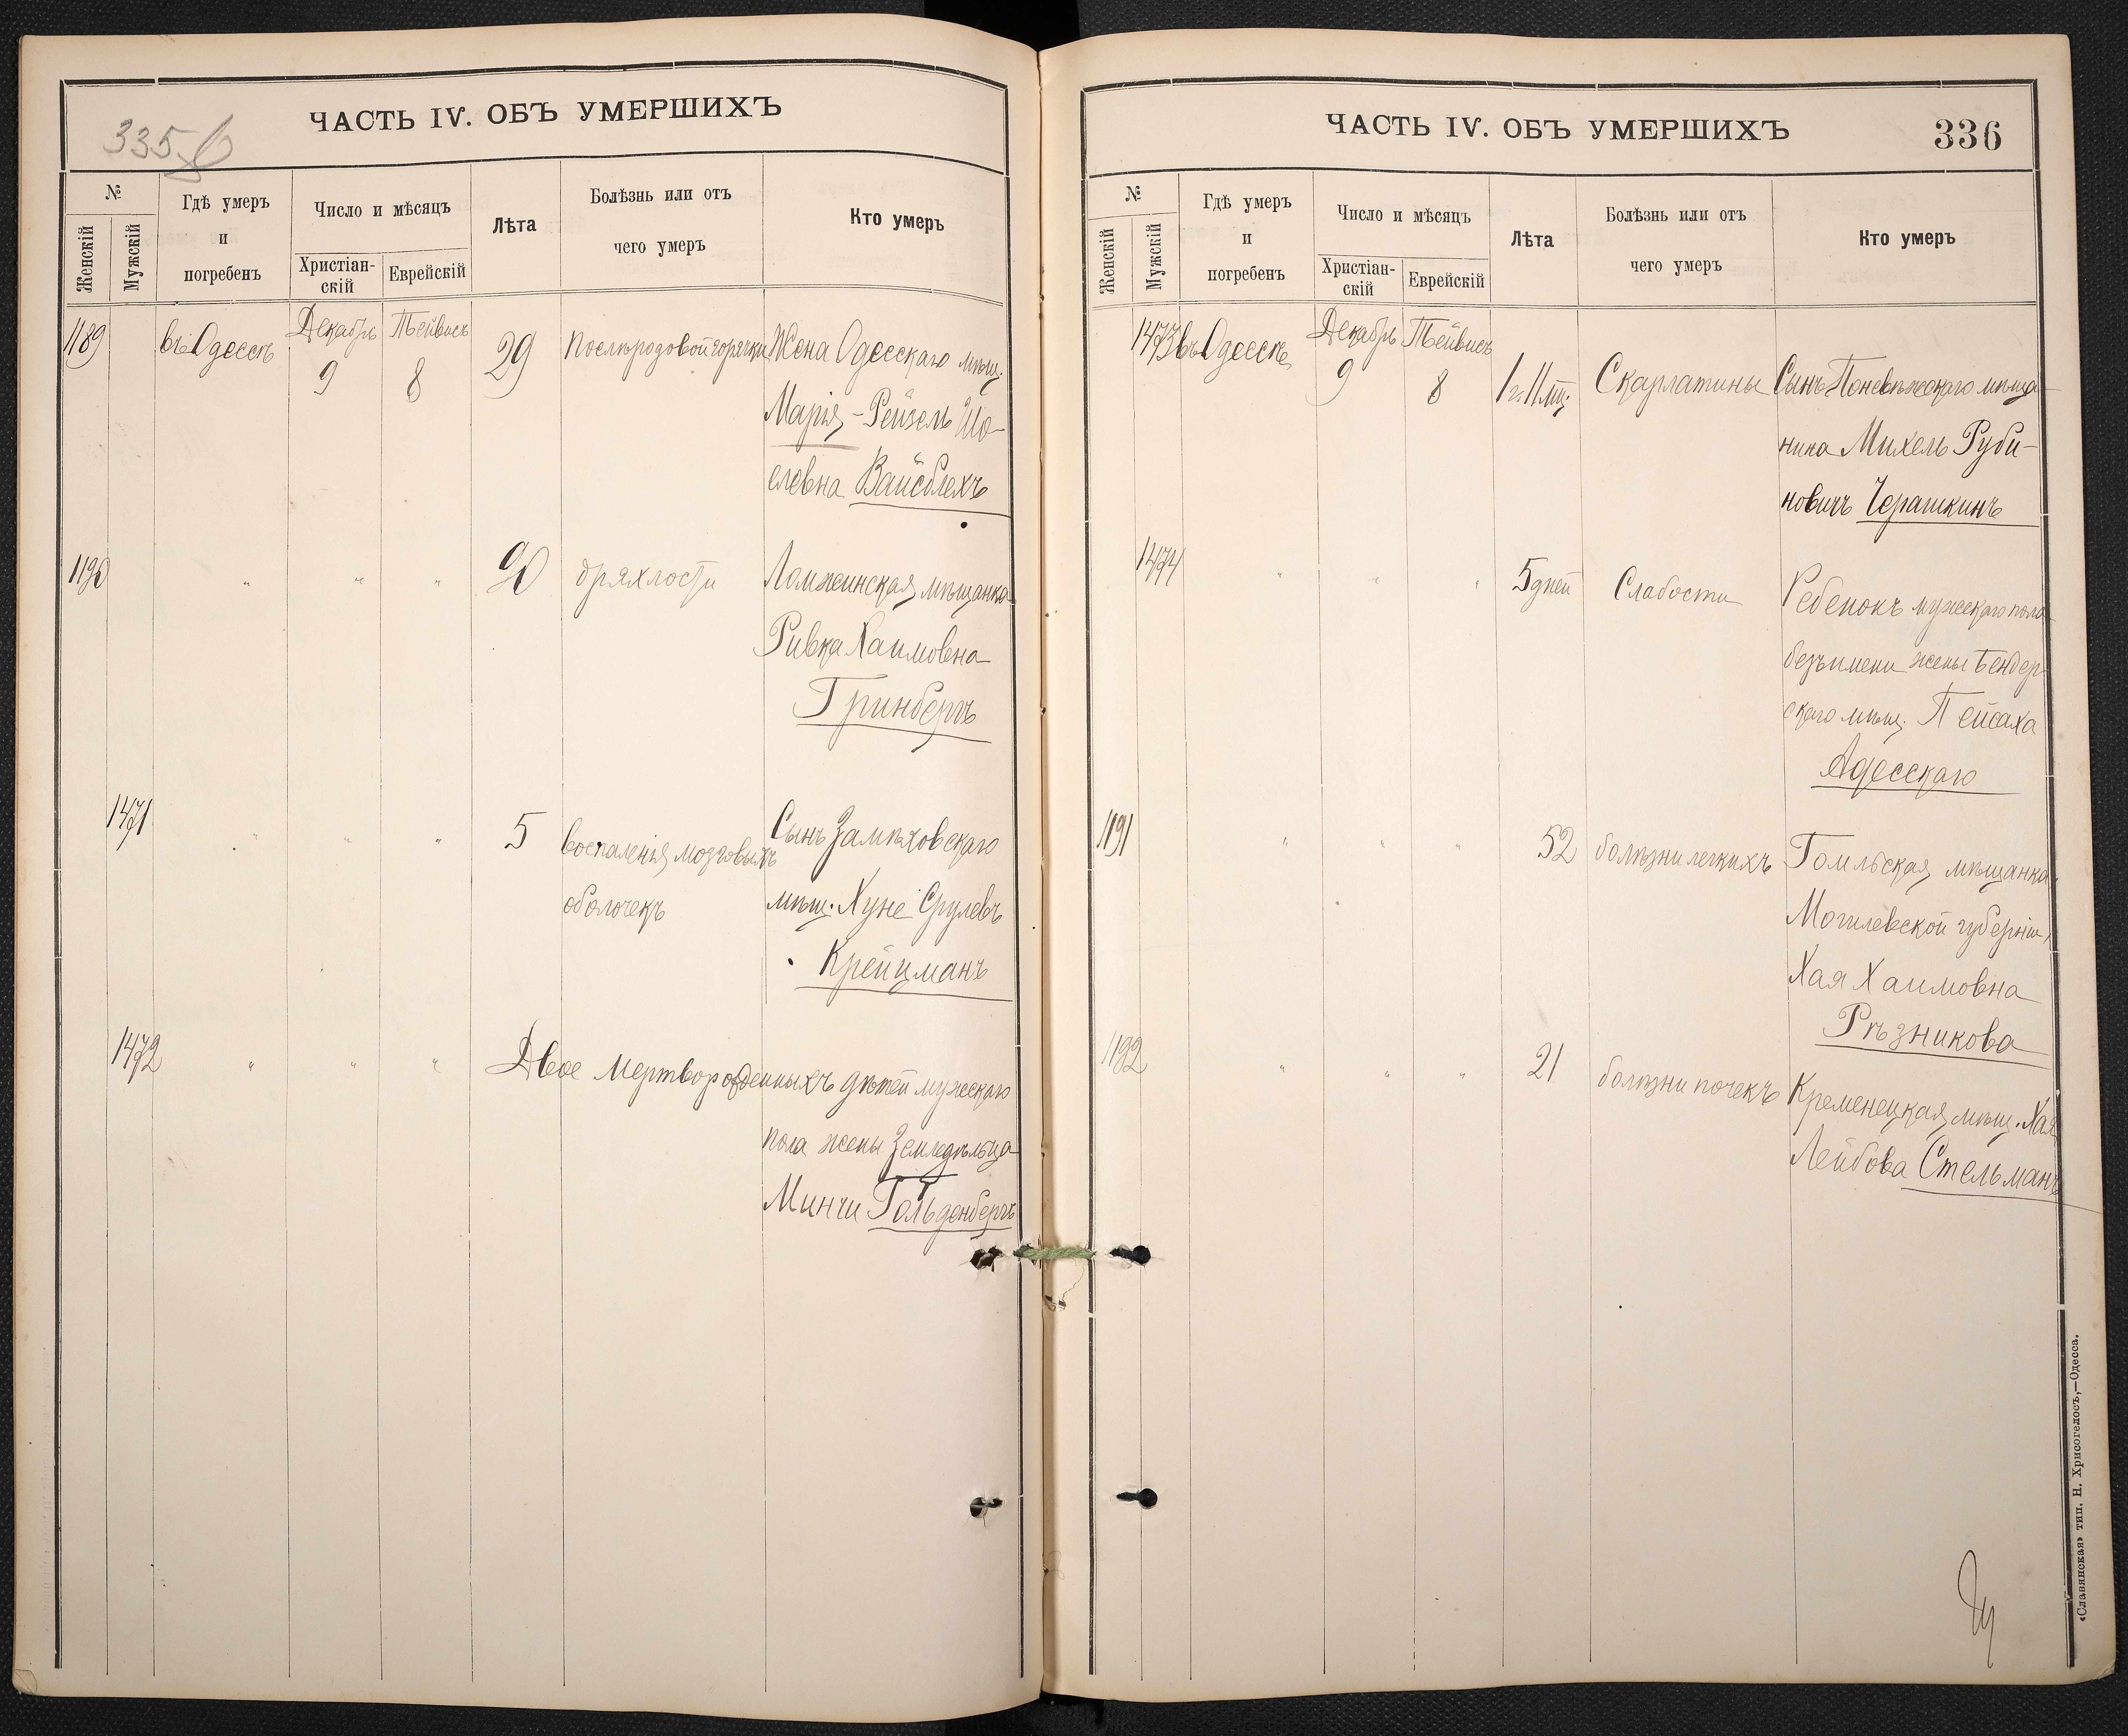 335 б
ЧАСТЬ IV. ОБЪ УМЕРШИХЪ
№
Женскій
Мужскій
Гдѣ умеръ
и
погребенъ
Число и мѣсяцъ
Христіан-
скій
Еврейскій
Лѣта
Болѣзнь или отъ
чего умеръ
Кто умеръ
1189 въ Одессѣ Декабрь 9 Тейвисъ 8 29 Послѣродовой горячки Жена Одесскаго мѣщ.
Марія-Рейзель Ио-
елевна Вайсблехъ
1190 " " " 90 дряхлости Ломжинская мѣщанка
Ривка Хаимовна
Гринбергъ
1471 " " " 5 воспаленія мозговыхъ Сынъ Замѣховскаго
оболочекъ мѣщ. Хуне Срулевъ
Крейцманъ
1472 " " " Двое мертворожденныхъ дѣтей мужскаго
пола жены Земледѣльца
Минчи Гольденбергъ
ЧАСТЬ IV. ОБЪ УМЕРШИХЪ
336
№
Женскій
Мужскій
Гдѣ умеръ
и
погребенъ
Число и мѣсяцъ
Христіан-
скій
Еврейскій
Лѣта
Болѣзнь или отъ
чего умеръ
Кто умеръ
1473 въ Одессѣ Декабрь 9 Тейвисъ 8 1 г. 11 мц. Скарлатины Сынъ Поневѣжскаго мѣща-
нина Михель Руби-
новичъ Черашкинъ
1474 " " " 5 дней Слабости Ребенокъ мужскаго пола
безъ имени жены Бендер-
скаго мѣщ. Пейсаха
Адесскаго
1191 " " " 52 болѣзни легкихъ Гомльская мѣщанка
Могилевской губерніи,
Хая Хаимовна
Рѣзникова
1192 " " " 21 болѣзни почекъ Кременецкая мѣщ. Хая
Лейбова Стельманъ
«Славянская» тип. Н. Хрисогелосъ,—Одесса.